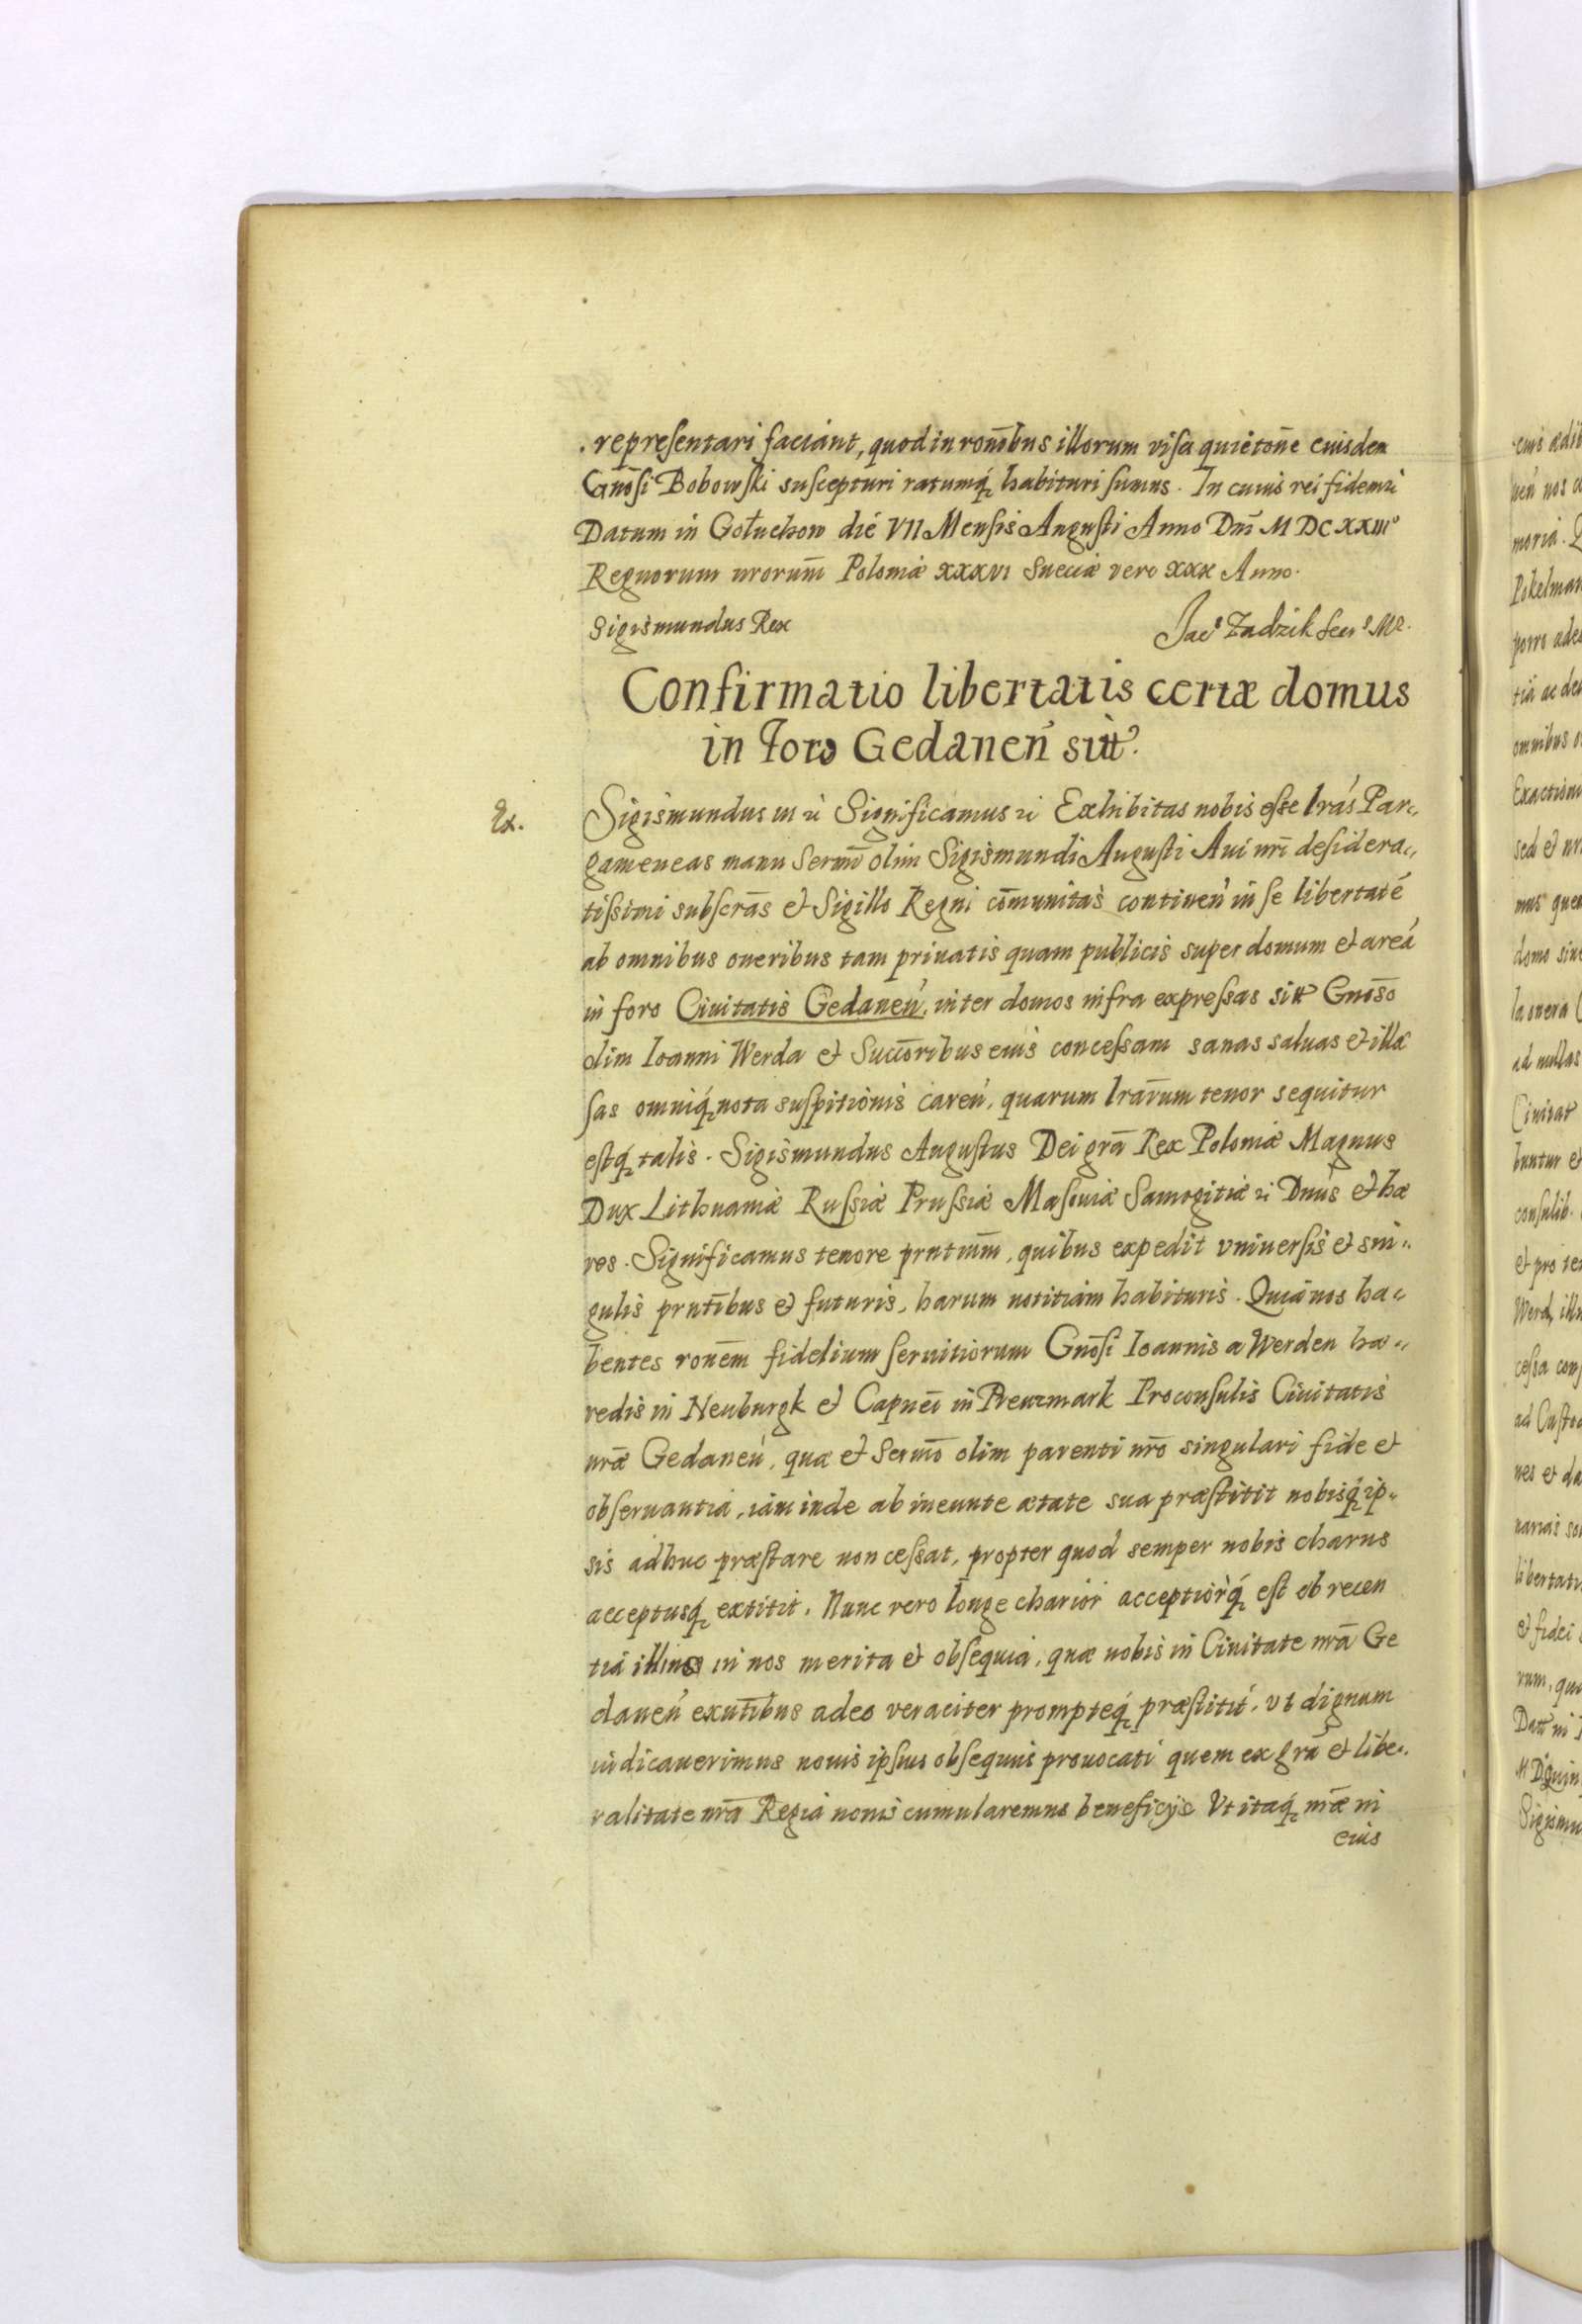 repreſentari faciant, quod in rom̄bus illorum viſa quietoñe euisdem
Gnōſi Bobowſki suſcepturi ratumq́ habituri ſumus. In cuius rei fidem ꝛi
Datum in Gołuchow die VII Menſis Auguſti Anno Dnī M DC XXIII°
Regnorum nrorum̄ Poloniæ XXXVI Sueciæ vero XXX Anno.
Sigismundus Rex Jac⁹ Zadzik Secr⁹ Mr.
Confirmatio libertatis certæ domus
in Foro Gedaneń sitt̃.
Ex.
Sigismundus III ꝛi Significamus ꝛi Exhibitas nobis eſse lrás Par„
gameneas manu Sermī olim Sigismundi Auguſti Aui nrī deſidera„
tiſsimi subſcrās et Sigillo Regni cōmunitas continen̓ in ſe libertaté
ab omnibus oneribus tam priuatis quam publicis super domum et areá
in foro Ciuitatis Gedaneń, inter domos infra expreſsas sitt̃ Gnoſō
olim Ioanni Werda et Succōribus eius conceſsam sanas saluas et illæ
ſas omniq́ nota suſpitionis careń, quarum lrārum tenor sequitur
eſtq́ talis. Sigismundus Auguſtus Dei grā Rex Poloniæ Magnus
Dux Lithuaniæ Ruſsiæ Pruſsiæ Maſouiæ Samogitiæ ꝛi Dnus et hæ
res. Significamus tenore prntium̄, quibus expedit vniuerſis et sin„
gulis prntībus et futuris, harum notitiam habituris. Quia nos ha„
bentes ronēm fidelium ſeruitiorum Gnōſi Ioannis a Werden hæ„
redis in Neuburgk et Capneī in Preuzmark Proconſulis Ciuitatis
nrǣ Gedaneń, quæ et Sermō olim parenti nrō singulari fide et
obſeruantia, iam inde ab ineunte ætate sua præſtitit nobisq́ ip„
sis adhuc præſtare non ceſsat, propter quod semper nobis charus
acceptusq́ extitit. Nunc vero longe charior acceptiorq́ eſt ob recen
tia illius in nos merita et obſequia, quæ nobis in Ciuitate nrā Ge
daneń exntībus adeo veraciter prompteq́ præſtitit, vt dignum
iudicauerimus nouis ipſius obſequiis prouocati quem ex grā et libe„
ralitate nrā Regia nouis cumularemus beneficijs Vt itaq́ nrǣ in
eius